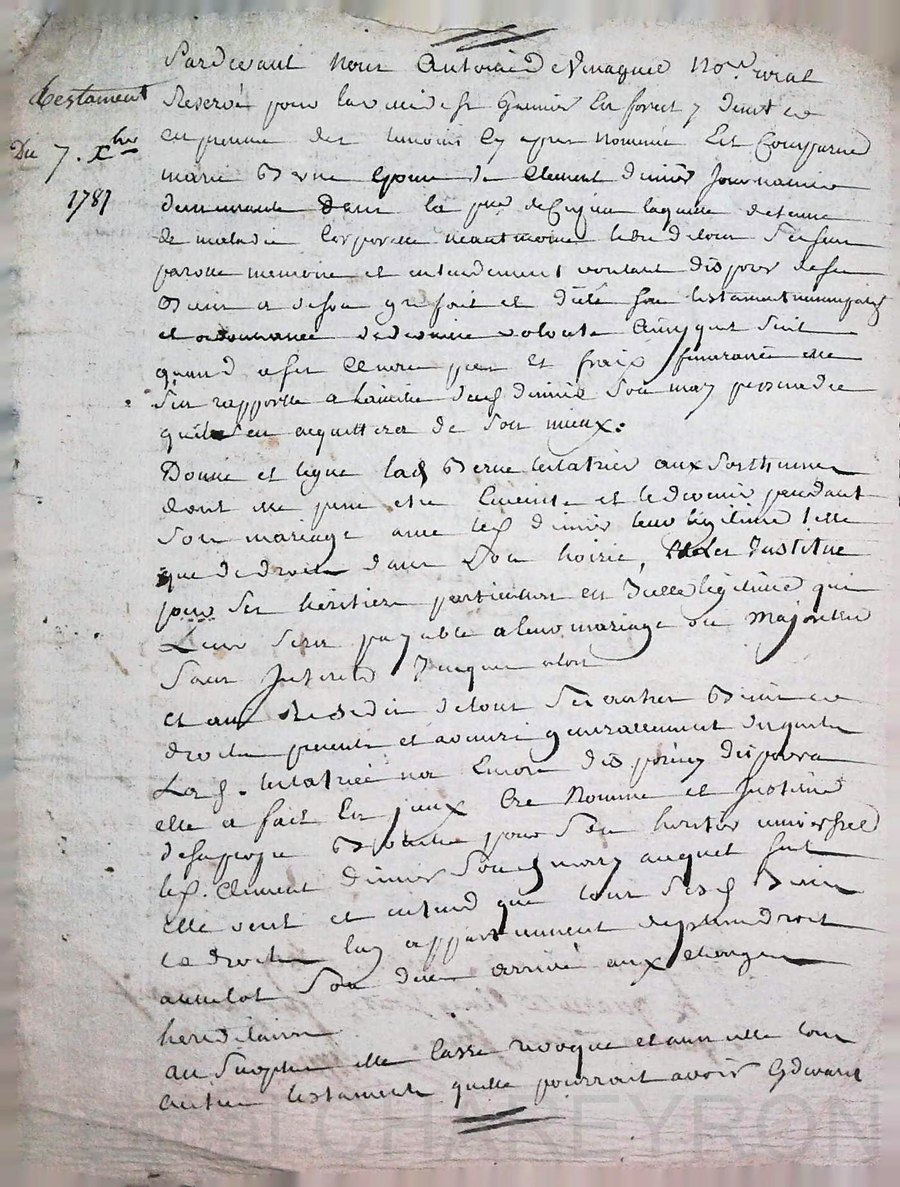 Testament
Du 7. Xbre
1781
Pardevant nous Antoine Devinaquer nore roial
Reservé pour la de St et
en presence des temoins cy apres nommés Est Comparue
marie Berne Epouse de Clement dinier Journaiier
demeurante dans la psse de laquelle detenue
de maladie Corporelle neantmoins libre de tous ses sens
parolle memoire et entendement voulant disposer de ses
Biens a de son gre fait et dicté son testament nuncupatif
et ordonnance de derniere volonté Ainsy que suit
quand a ses et fraix funeraires elle
s'en rapporte a la dud dinier son mary persuadée
qu'il s'en acquittera de son mieux.
Donne et legue lad Berne testatrice aux Posthumes
dont elle peut etre Enceinte et le devenir pendant
son mariage avec led dinier leur legitime telle
que de droit dans son hoirie, et les Institue
pour ses héritiers particuliers en d'icelle legitime qui
Leur sera payable a leur mariage ou majorité
sans Interets Jusques alors
et au Residu de tous ses autres Biens et
droits presents et avenirs generallement desquels
Lad. testatrice n'a Encore disposé ny disposera
elle a fait Cree Nomme et Institué
de sa propre Bouche pour son heritier universel
led. Clement dinier Son d mary auquel
elle veut et entend que tous sesd Biens
et droits luy appartiennent de plein droit
aussitot Son deces arrivé aux charges
hereditaires
au surplus elle Casse revoque et annulle tous
autres testaments qu'elle pourroit avoir Cy devant
CHAREYRON